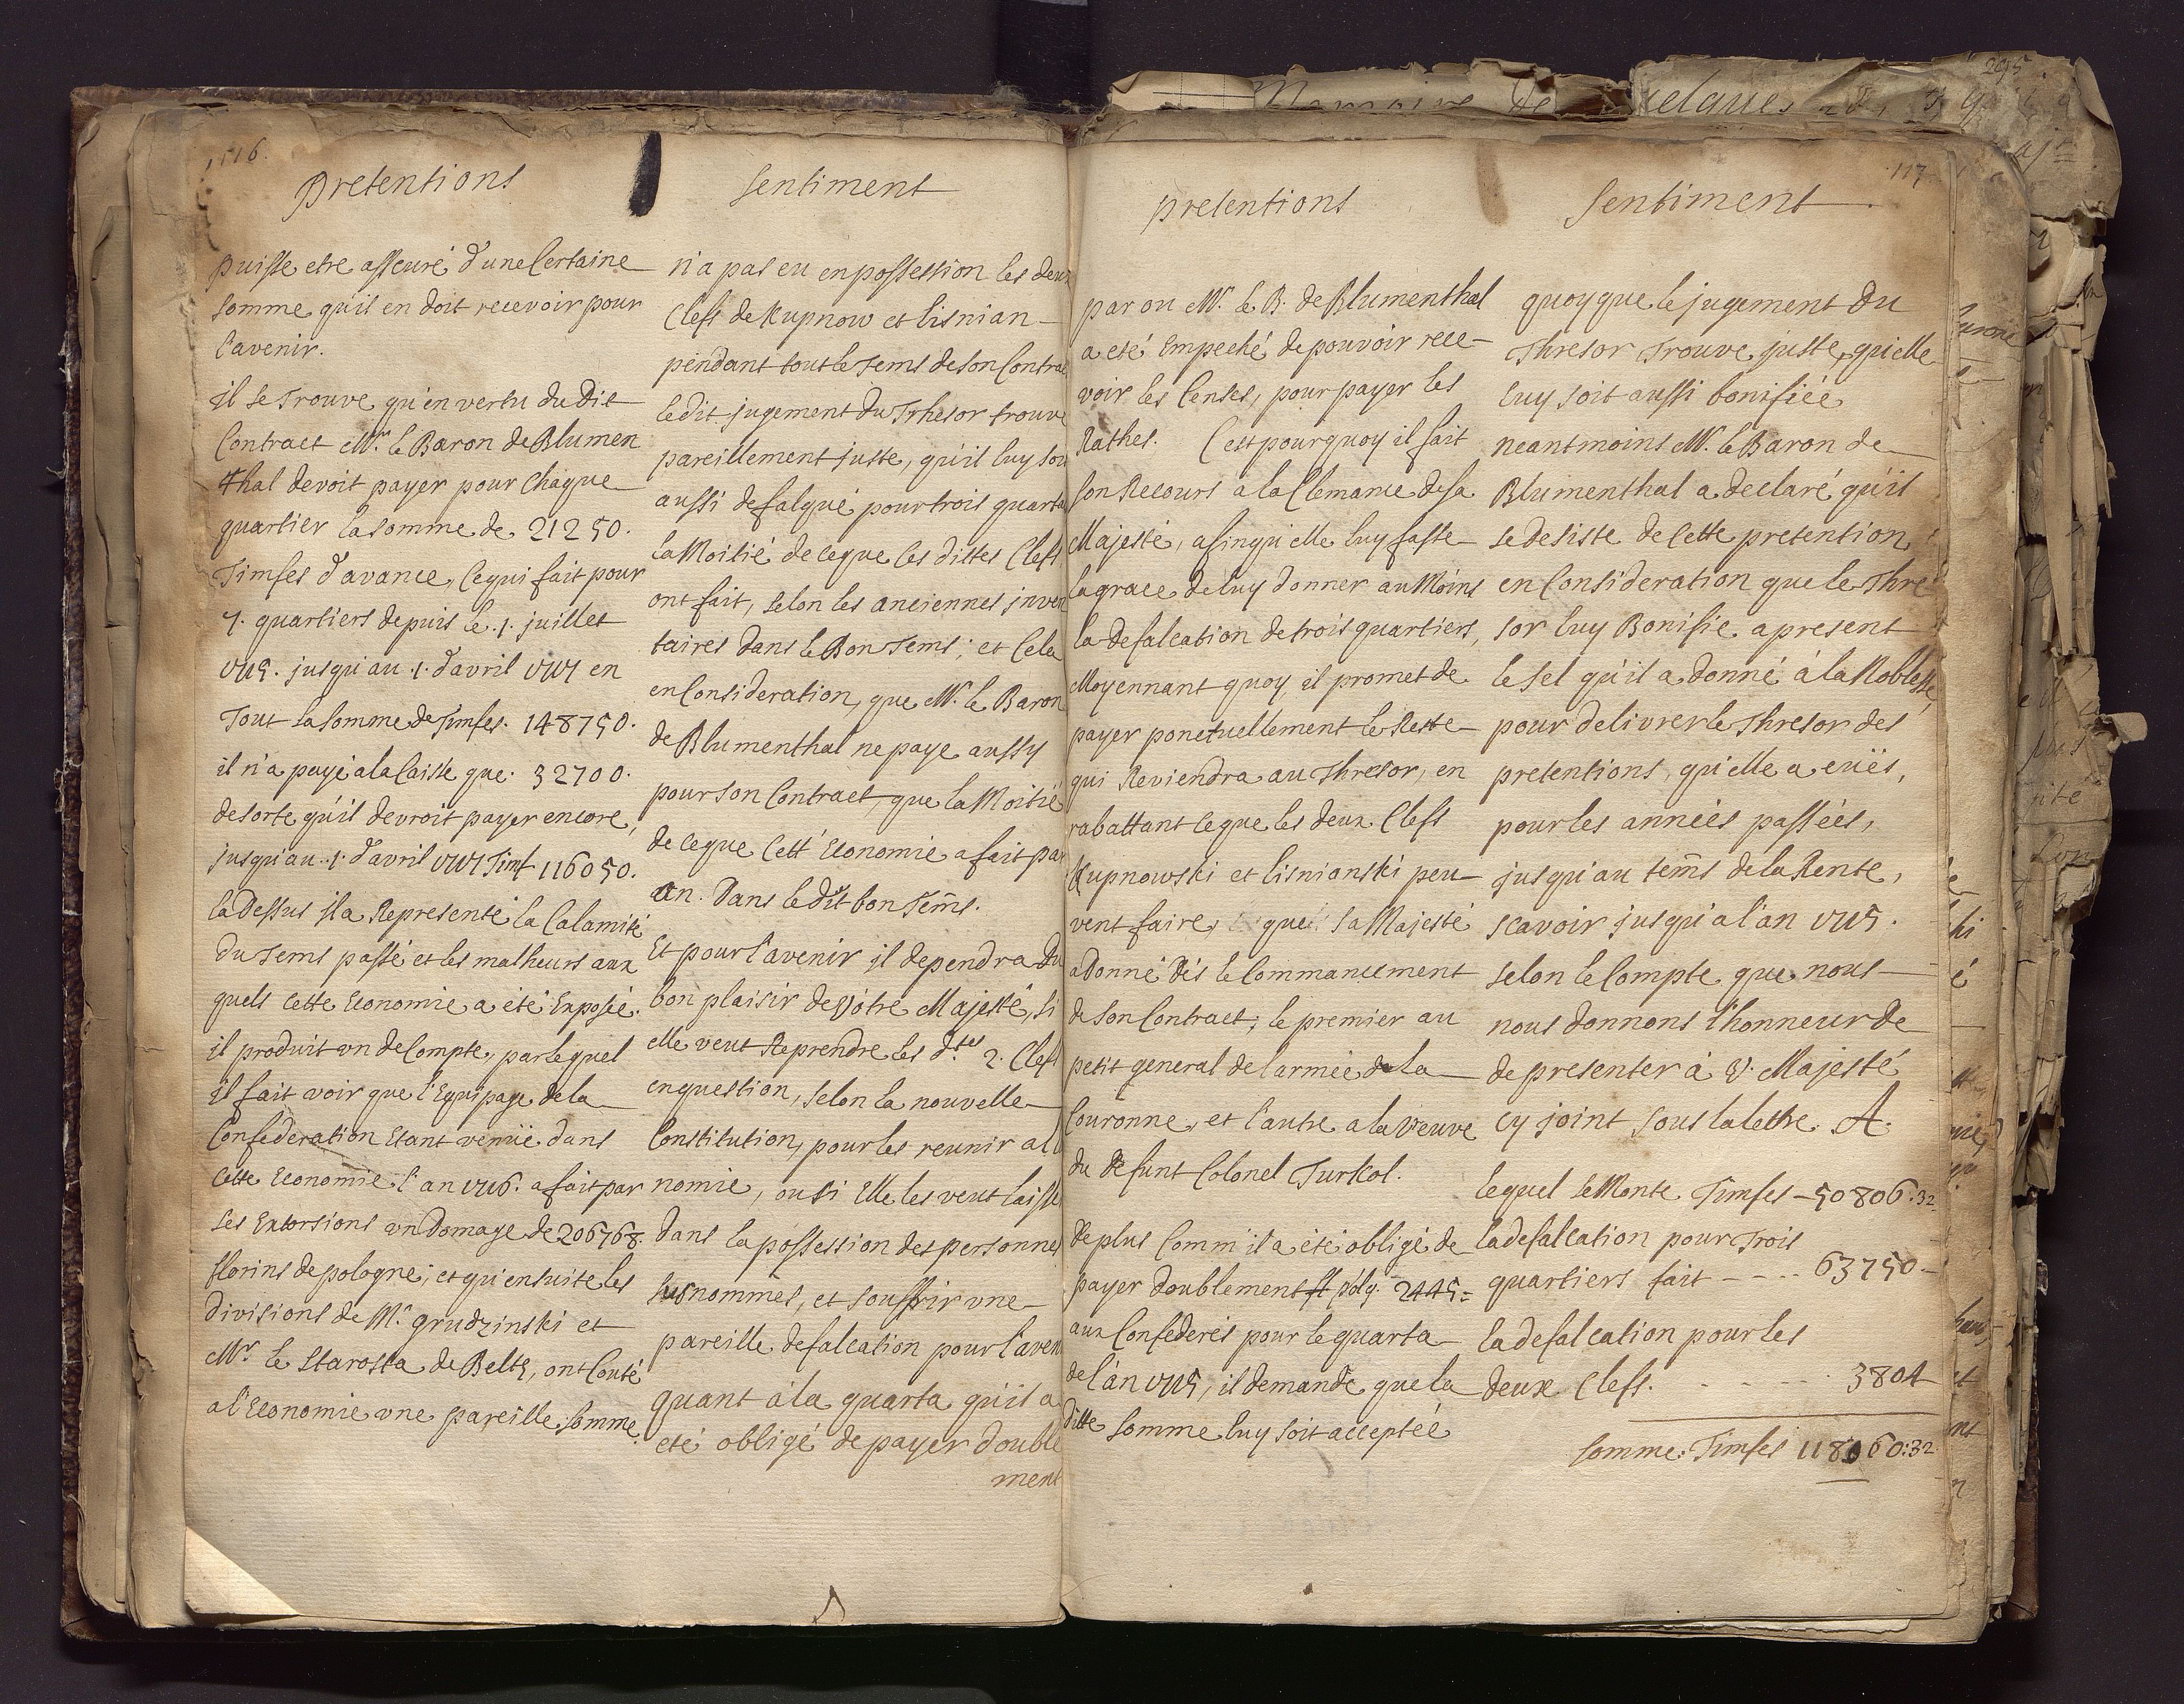 116.
pretentions
puisse etre asseuré d'une Certaine
somme qu'il en doit recevoir pour
l'avenir.
il se Trouve qu'en vertu du Dit
Contract Mr. le Baron de Blumen
thal devoit payer pour Chaque
quartier la somme de 21250.
Timfes d'avance, Ce qui fait pour
7. quartiers depuis le .1. juillet
jusqu'au .1. d'avril en
Tout la somme de Timfes. 148750.
il n'a payé a la Caisse que. 32700.
de sorte qu'il devroit payer encore,
jusqu'au .1. d'avril Timf 116050.
la Dessus il a Representé la Calamité
du Tems passé et les malheurs aux
quels cette Economie a eté Exposée.
il produit un deCompte, par lequel
il fait voir que l'Equipage de la
Confederation Etant venüe dans
Cette Economie l'an a fait par
ses Extorsions un Domage de 206768.
florins de pologne, et qu'ensuite les
divisions de Mr. grudzinski et
Mr. le Starosta de Beltz, ont Couté
a l'Economie une pareille somme.
sentiment
n'a pas eu en possession les deux
Clefs de Kupnow et lisnian
pendant tout le Tems de son Contrac
le dit jugement du Trhesor trouve
pareillement juste, qu'il luy soi
aussi defalqué pour trois quarti
la Moitié de ce que les dittes Clefs
ont fait, selon les anciennes inven
taires dans le Bon Tems; et Cela
en Consideration, que Mr. le Baron
de Blumenthal ne paye aussy
pour son Contract, que la Moitié
de ce que Cett' Economie a fait par
an. Dans le dit bon Tem̃s.
Et pour l'avenir il dependra du
bon plaisir de Vôtre Majesté, si
elle veut Reprendre les d.tes 2. Clefs
en question, selon la nouvelle
Constitution, pour les reunir a l'
nomie, ou si Elle les veut laisse
dans la possession des personnes
susnommés, et souffrir une
pareille defalcation pour l'aven
quant à la quarta qu'il a
eté obligé de payer double
ment
117.
pretentions
par ou Mr. le B. de Blumenthal
a eté Empeché de pouvoir rece-
voir les Censes, pour payer les
Rathes. C'est pourquoy il fait
son Recours a la Clemance de sa
Majesté, afin qu'elle luy fasse
la grace de luy donner au Moins
la defalcation de trois quartiers,
Moyennant quoy, il promet de
payer ponctuellement le Reste
qui Reviendra au Thresor, en
rabattant ce que les deux Clefs
Kupnowski et lisnianski peu
vent faire, que sa Majesté
a Donné dés le Commancement
de son Contract; le premier au
petit general de l'armée de la
Couronne, et l'autre a la Veuve
du defunt Colonel Turkol.
de plus Comm'il a eté obligé de
payer doublement fl polg. 2445 =
aux Confederés pour le quarta
de l'an il demande que la
ditte somme luy soit acceptée
sentiment
quoy que le jugement du
Thresor Trouve juste, qu'elle
luy soit aussi bonifiée
neantmoins Mr. le Baron de
Blumenthal a declaré qu'il
se desiste de Cette pretention
en Consideration que le Thre
sor luy Bonifie a present
le sel qu'il a donné á la Noblesse,
pour delivrer le Thresor des
pretentions, qu'elle a eües,
pour les années passées,
jusqu'au tem̃s de la Rente,
scavoir jusqu'a l'an
selon le Compte que nous
nous donnons l'honneur de
de presenter à V. Majesté
cy joint sous la lettre. A.
lequel se Monte Timfes – 50806:32.
la defalcation pour Trois
quartiers fait - - - - 63750 –
la defalcation pour les
deux Clefs. - - - - - 3804
somme: Timfes 118060:32